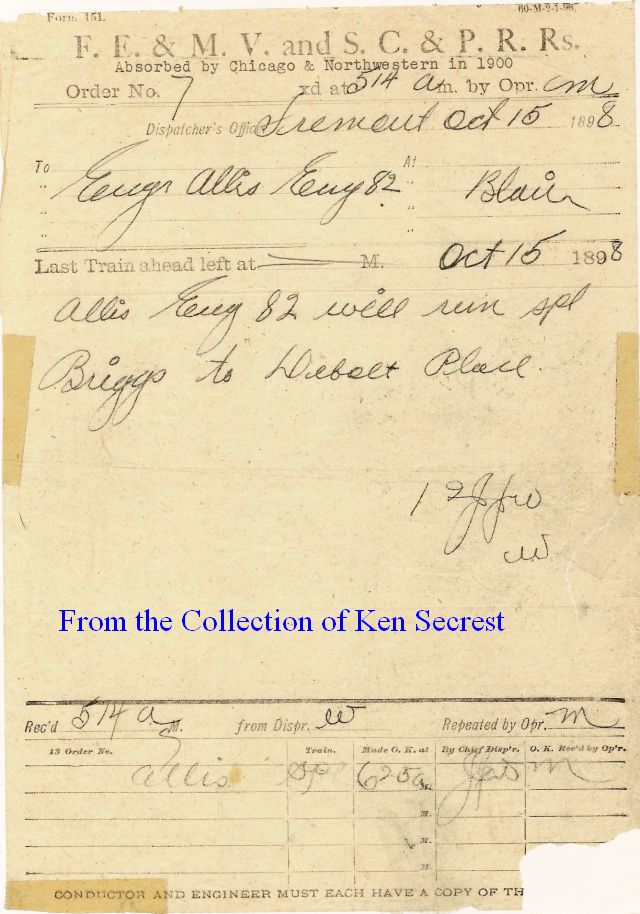 Form 151.
60-M-2-1-98.
F. E. & M. V. and S. C. & P. R. Rs.
Absorbed by Chicago & Northwestern in 1900
Order No. 7 xd at 514 a m. by Opr. m
Dispatcher's Office Fremont Oct 15 1898
To Engr Allis Eng 82 At Blair
" "
" "
" "
Last Train ahead left at M. Oct 15 1898
Allis Eng 82 will run spl
Briggs to Debolt Place
12
W
From the Collection of Ken Secrest
Rec'd 514 a M. from Dispr. W Repeated by Opr. m
13 Order No. Train. Made O. K. at By Chief Disp'r. O. K. Rec'd by Op'r.
Allis Sp 625a M. m
M.
M.
M.
CONDUCTOR AND ENGINEER MUST EACH HAVE A COPY OF TH